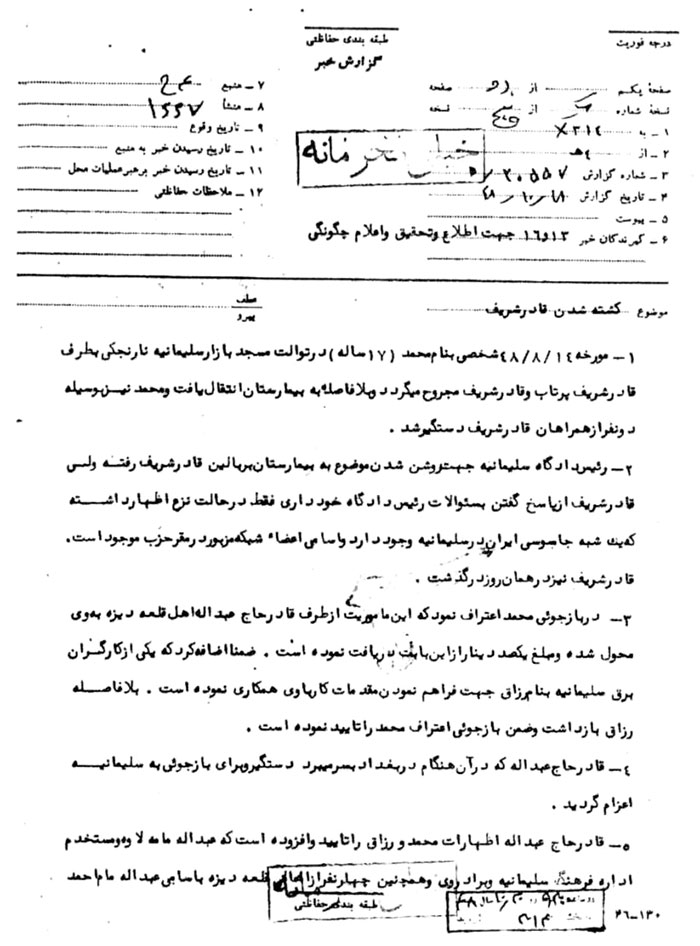 طبقه بندی حفاظتی
درجه فوریت
گزارش خبر
صفحه یکم از صفحه
نسخه شماره از نسخه
۱ ـ به ۳۱۴
۲ ـ از ۴ هـ
۳ ـ شماره گزارش ۲۰۵۵۷
۴ ـ تاریخ گزارش ۴۸/۱۰/۱۸
۵ ـ پیوست
۶ ـ گیرندگان خبر ۱۳و۱۶ جهت اطلاع وتحقیق واعلام چگونگی
۷ ـ منبع
۸ ـ منشأ ۱۵۵۷
۹ ـ تاریخ وقوع
۱۰ ـ تاریخ رسیدن خبر به منبع
۱۱ ـ تاریخ رسیدن خبر برهبرعملیات محل
۱۲ ـ ملاحظات حفاظتی
خیلی محرمانه
موضوع کشته شدن قادرشریف
عطف
پیرو
۱ـ مورخه ۴۸/۸/۱۴ شخصی بنام محمد (۱۷ ساله) درتوالت مسجد بازارسلیمانیه نارنجکی بطرف
قادرشریف پرتاب وقادرشریف مجروح میگردد وبلافاصله به بیمارستان انتقال یافت ومحمد نیزبوسیله
دونفرازهمراهان قادرشریف دستگیرشد .
۲ـ رئیس دادگاه سلیمانیه جهت روشن شدن موضوع به بیمارستان بربالین قادرشریف رفته ولی
قادرشریف ازپاسخ گفتن بسئوالات رئیس دادگاه خودداری فقط درحالت نزع اظهارداشته
که یک شبه جاسوسی ایران درسلیمانیه وجود دارد واسامی اعضاء شبکه مزبوردرمقرحزب موجود است.
قادرشریف نیزدرهمان روزدرگذشت .
۳ـ دربازجوئی محمد اعتراف نمودکه این ماموریت ازطرف قادرحاج عبداله اهل قلعه دیزه بوی
محول شده ومبلغ یکصد دینارازاین بابت دریافت نموده است . ضمنا اضافه کردکه یکی ازکارگران
برق سلیمانیه بنام رزاق جهت فراهم نمودن مقدمات کارباوی همکاری نموده است . بلافاصله
رزاق بازداشت وضمن بازجوئی اعتراف محمد راتایید نموده است .
۴ـ قادرحاج عبداله که درآن هنگام دربغداد بسرمیبرد دستگیروبرای بازجوئی به سلیمانیه
اعزام گردید .
۵ـ قادرحاج عبداله اظهارات محمد و رزاق راتایید وافزوده است که عبداله مامه لاوه ومستخدم
اداره فرهنگ سلیمانیه وبرادروی وهمچنین چهارنفرازاهالی قلعه دیزه باسامی عبداله مام احمد
طبقه بندی حفاظتی
۴۶-۱۳۰